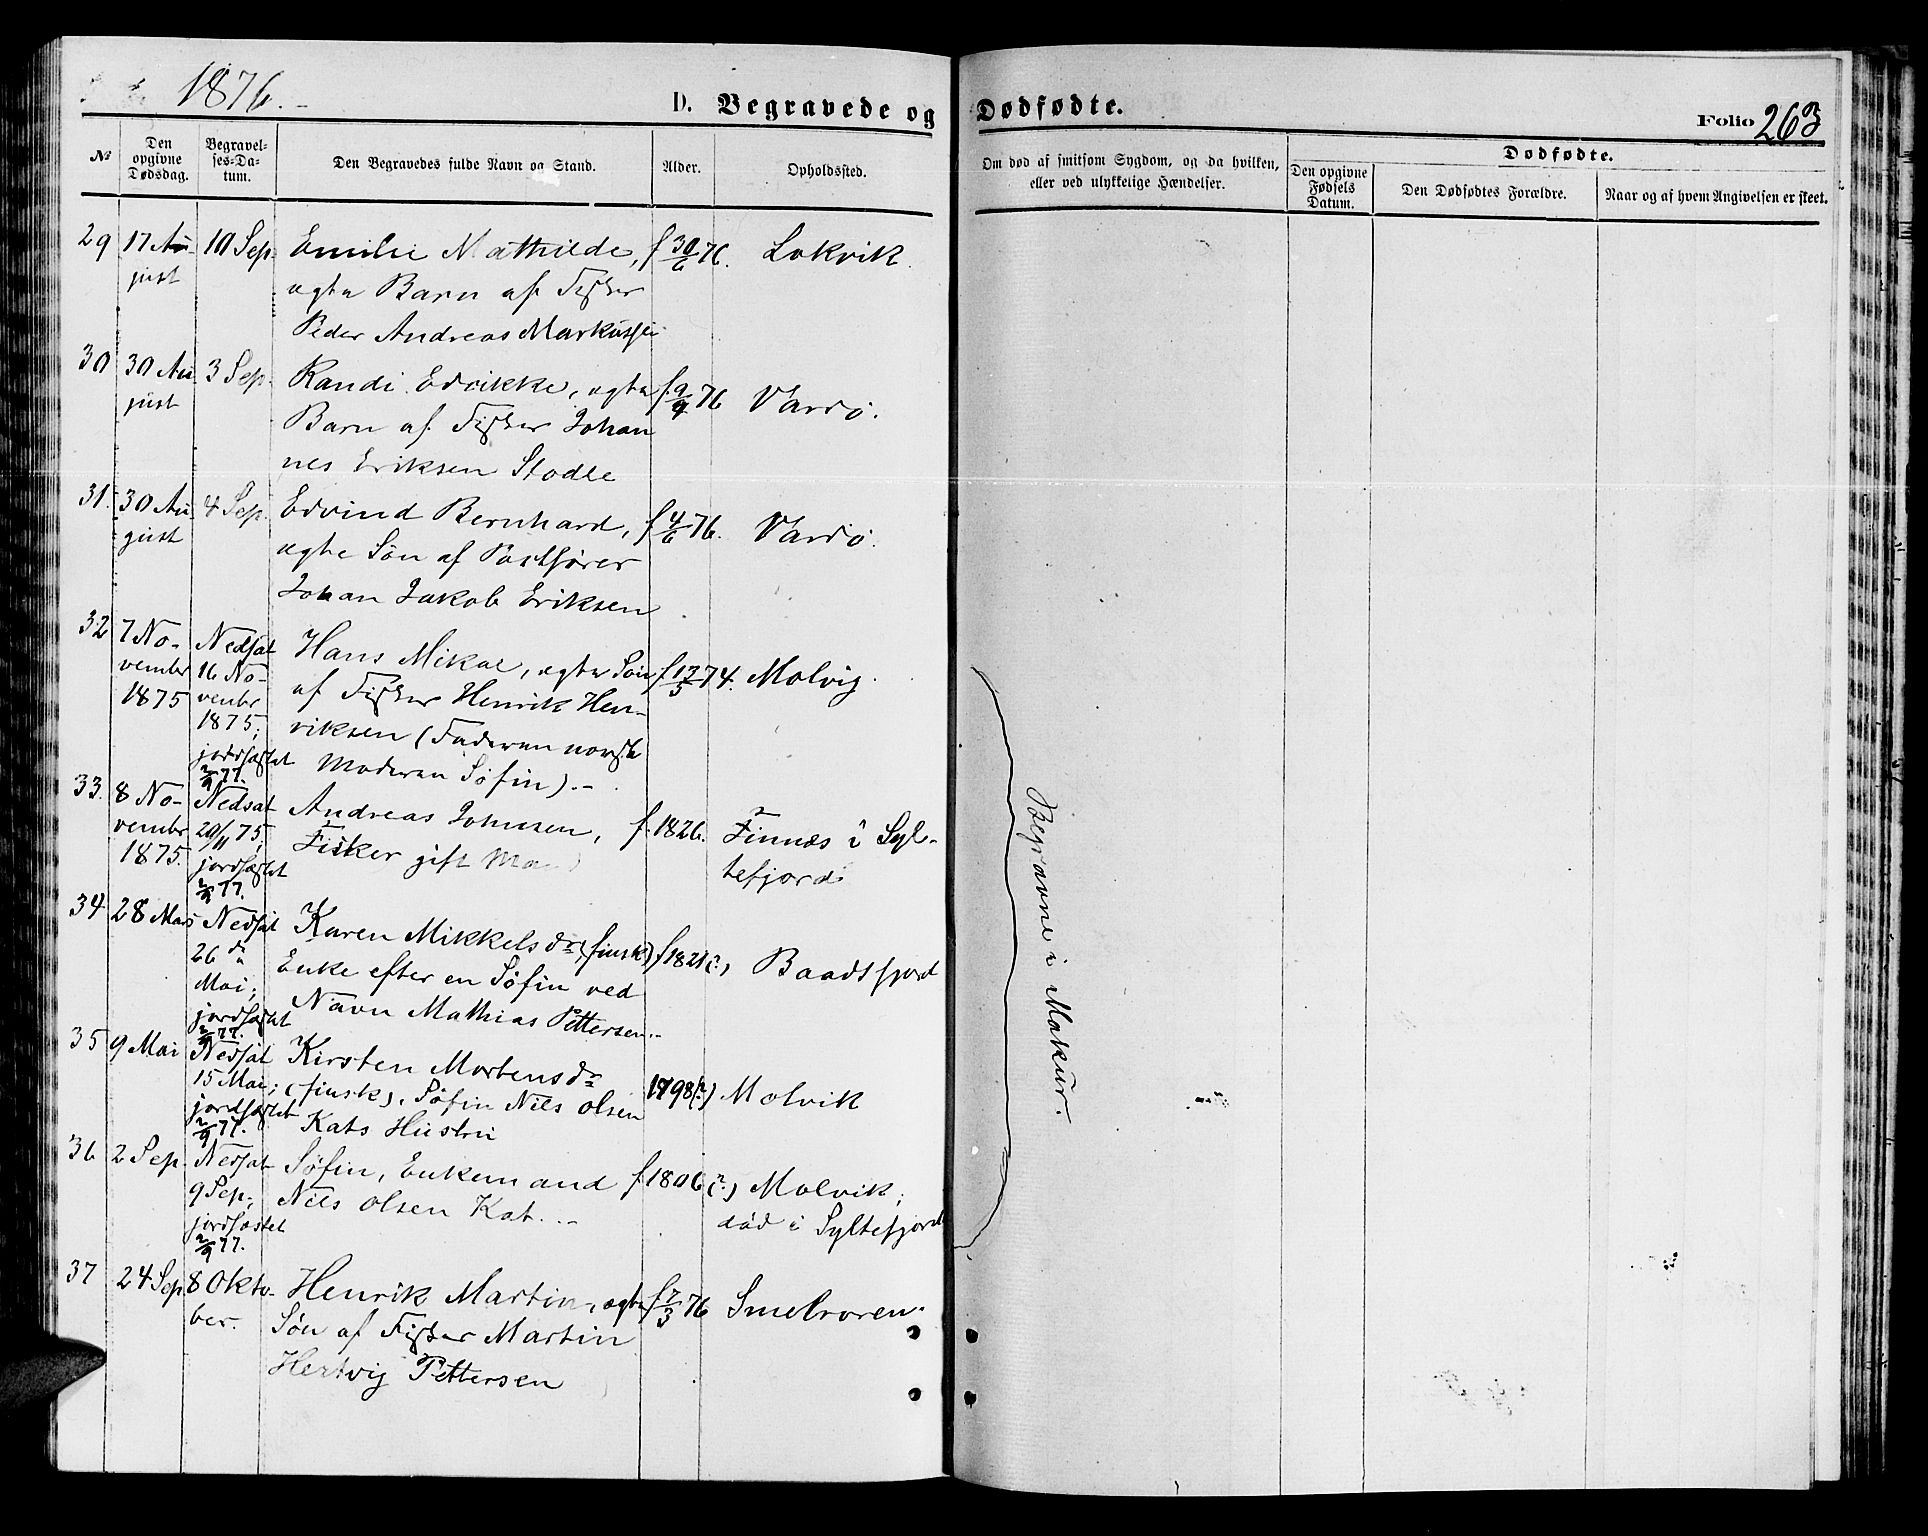 1876.
D. Begravede og Dødfødte.
Folio 263
No
Den opgivne Dødsdag.
Begravelses-Datum.
Den Begravedes fulde Navn og Stand.
Alder.
Opholdssted.
Om død af smitsom Sygdom, og da hvilken, eller ved ulykkelige Hændelser.
Dødfødte.
Den opgivne Fødsels Datum.
Den Dødfødtes Forældre.
Naar og af hvem Angivelsen er skeet.
29 17 Au- 10 Sep. Emilie Mathilde, f 30/6 76. Lokvik.
gust ægte Barn af Fisker
Peder Andreas Markussen
30 30 Au 3 Sep. Randi Edrikke, ægte f. 9/9 76 Vardö.
gust Barn af Fisker Johan
nes Eriksen Stodle
31. 30 Au 4 Sep. Edvind Bernhard, f 4/6 76. Vardö.
gust ægte Sön af Postfører
Johan Jakob Eriksen
32 7 No- Nedsat Hans Mikal, ægte Sön f 17/5 74. Molvig.
vembr 16 No- af Fisker Henrik Hen-
1875 vembr riksen (Faderen norsk
1875; Moderen Søfin).-
jordfæstet
2/9 77.
33. 8 No- Nedsat Andreas Johnsen, f. 1826. Finnæs i Syl-
vembr 20/11 75; Fisker gift Man tefjord
1875. jordfæstet
2/9 77.
34 28 Mars Nedsat Karen Mikkelsdr (finsk) f 1821(?) Baadsfjord
26 de Enke efter en Søfin ved
Mai; Navn Mathias Pettersen.-
jordfæstet
2/9 77.
35 9 Mai Nedsat Kirsten Mortensdr 1798(?) Molvik
15 Mai; (finsk). Søfin Nils Olsen
jordfæstet Kats Hustru
2/9 77.
36 2 Sep. Nedsat Søfin, Enkemand f 1806(?) Molvik;
9 Sep; Nils Olsen Kat.-- död i Syltefjord
jordfæstet
2/9 77.
37 24 Sep 8 Okto- Henrik Martin, ægte f 7/3 76 Smelroren.
ber. Sön af Fisker Martin
Hertvig Pettersen
Begravne i Makur.